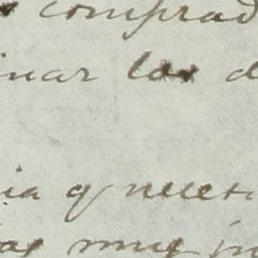 comprad
inar los d
ia q neces
as muy in